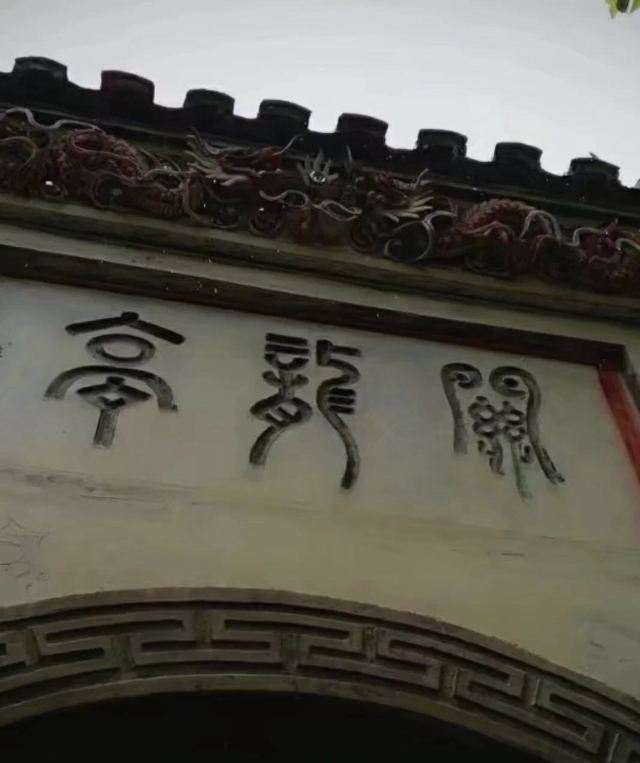 關龍亭